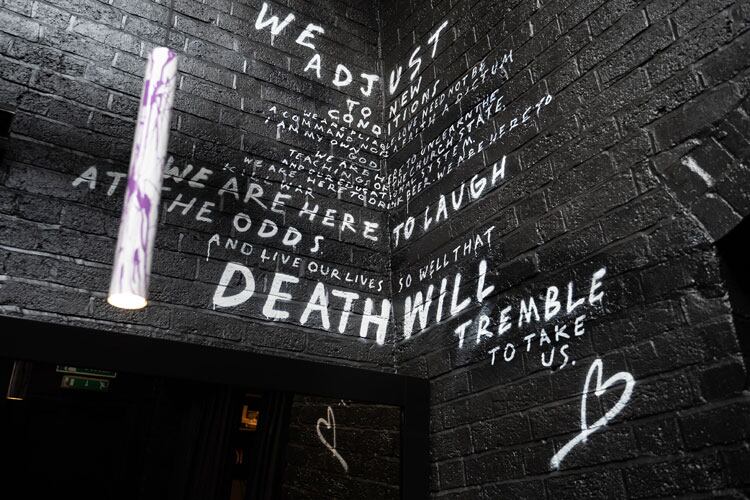 WE
ADJUST
TO NEW
CONDITIONS
WE ARE NEED NOT BE
A COMMAND A DICTUM
I AM MY OWN GOD.
WE ARE HERE TO UNLEARN THE
TEACHINGS OF THE CHURCH, STATE,
AND OUR EDUCATIONAL SYSTEM.
WE ARE HERE TO DRINK BEER. WE ARE HERE TO
KILL WAR.
WE ARE HERE TO LAUGH
AT THE ODDS
AND LIVE OUR LIVES SO WELL THAT
DEATH WILL
TREMBLE
TO TAKE
US.